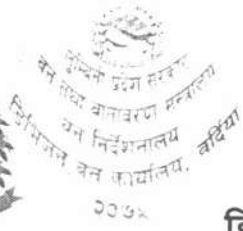 लुम्बिनी प्रदेश सरकार
वन तथा वातावरण मन्त्रालय
वन निर्देशनालय
डिभिजन वन कार्यालय, बर्दिया
२०७५